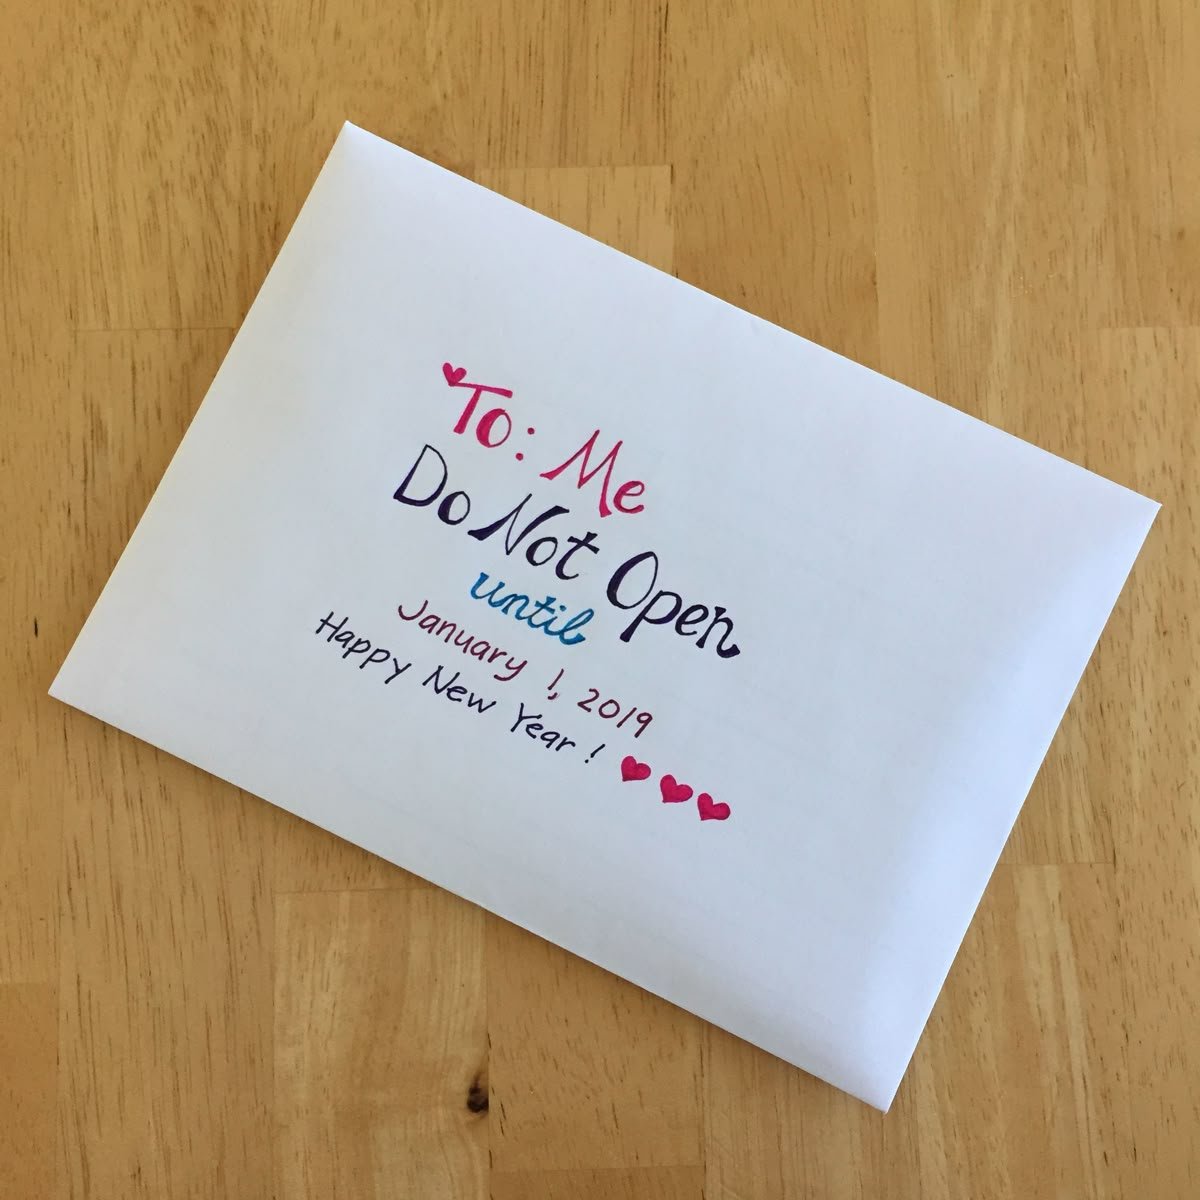 To: Me
Do Not Open
until
January 1, 2019
Happy New Year!